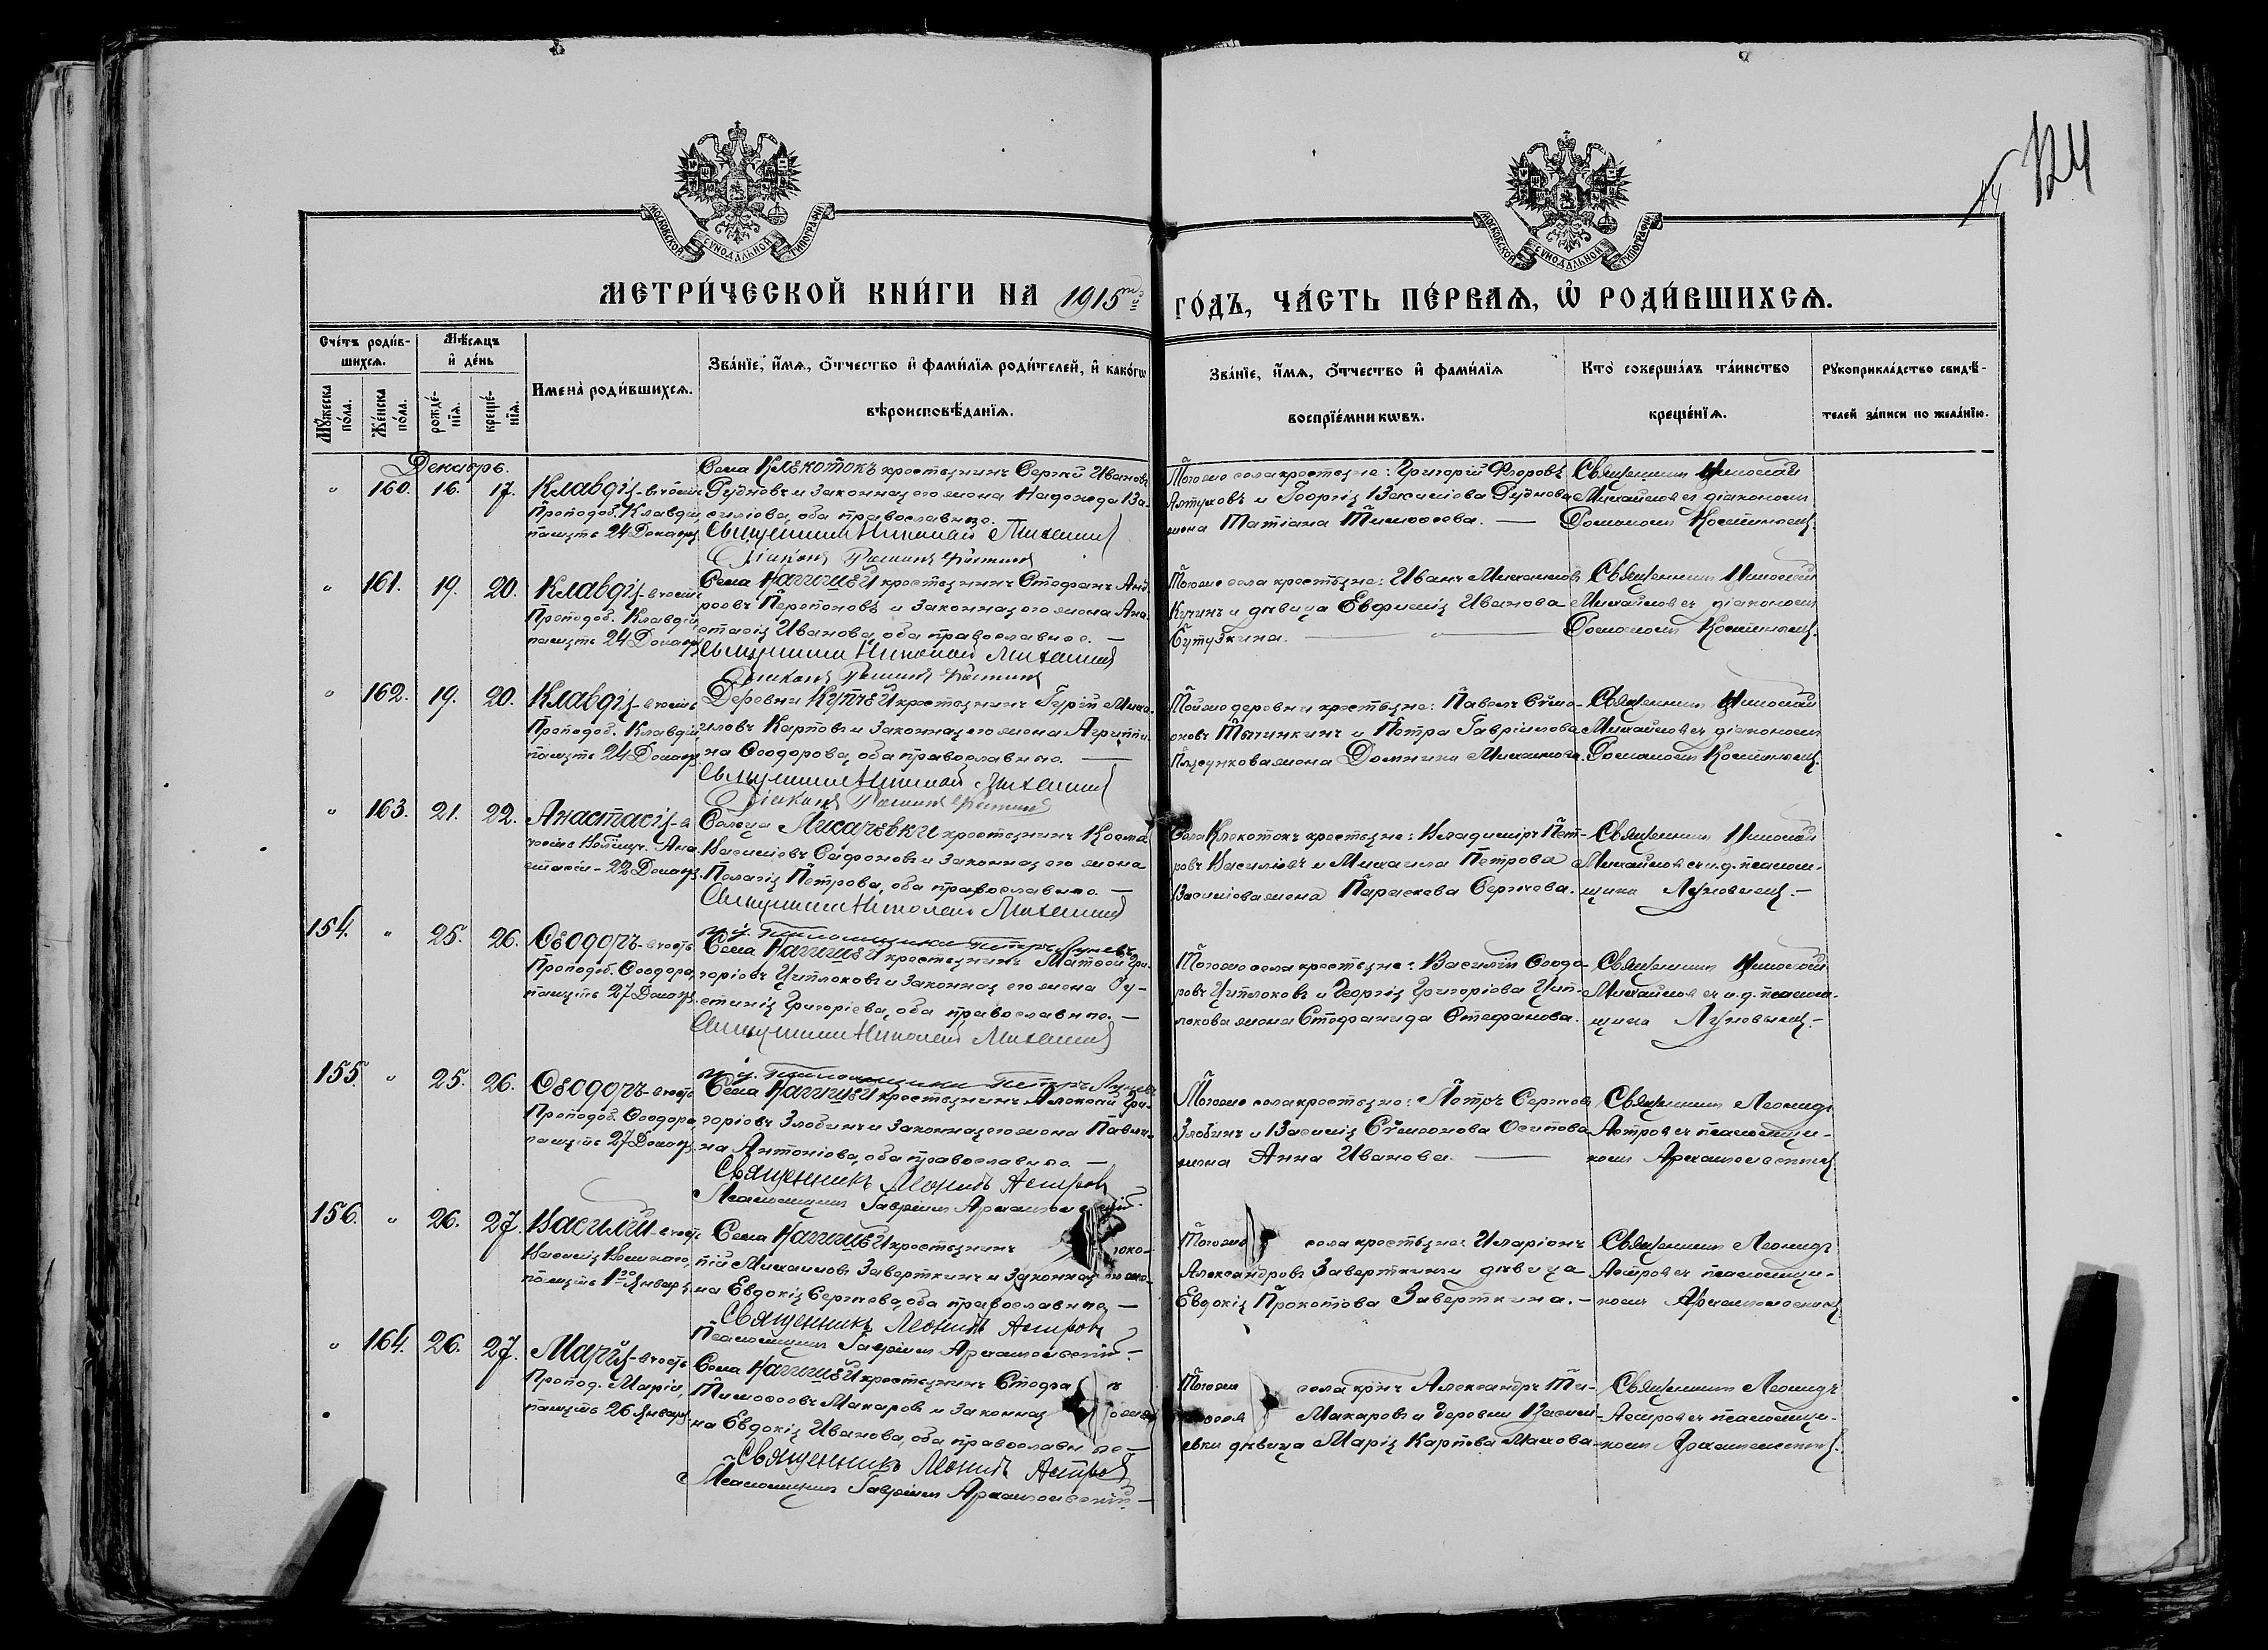 124
44
МОСКОВСКОЙ СУНОДАЛЬНОЙ ТИПОГРАФІИ
МОСКОВСКОЙ СУНОДАЛЬНОЙ ТИПОГРАФІИ
МЕТРИ́ЧЕСКОЙ КНИ́ГИ НА 1915 ГО́ДЪ, ЧА́СТЬ ПЕ́РВАѦ, Ѡ҆ РОДИ́ВШИХСѦ.
Сче́тъ роди́в-
шихсѧ.
Мѣ́сѧцъ
и҆ де́нь
Мꙋ́жеска по́ла.
Же́нска по́ла.
рожде́-
нїѧ.
креще́-
нїѧ.
Имена̀ роди́вшихсѧ.
Зва́нїе, и҆́мѧ, ѻ҆́тчество и҆ фами́лїѧ роди́телей, и҆ како́гѡ
вѣроисповѣ́данїѧ.
Зва́нїе, и҆́мѧ, ѻ҆́тчество и҆ фами́лїѧ
воспрїе́мникѡвъ.
Кто̀ соверша́лъ та́инство
креще́нїѧ.
Рꙋкоприкла́дство свидѣ́-
телей за́писи по жела́нїю.
Декабрь.
" 160. 16. 17. Клавдія - в честь
Преподоб. Клавдіи,
память 24 Декабря
Села Клекотокъ крестьянинъ Сергій Ивановъ
Рудневъ и законная его жена Надежда Ва-
силіева, оба православные.
Священникъ Николай Михайлов
Діаконъ Косткин
Тогоже села крестьяне: Григорій Ѳедоровъ
Алтуховъ и Георгія Василіева Руднева
жена Татіана Тимоѳеева. —
Священник Николай
Михайлов с діаконом
161. 19. 20. Клавдія - в честь
Преподоб. Клавдіи,
память 24 Декабря
Села Нагишей крестьянинъ Стефанъ Анд-
реевъ Перепоновъ и законная его жена Ана-
стасія Иванова, оба православные. —
Священникъ Николай Михайлов
Тогоже села крестьяне: Иванъ Михайловъ
Кучинъ и дѣвица Евфимія Иванова
Бутузкина.
Священник Николай
Михайлов с діаконом
162. 19. 20. Клавдія - в честь
Преподоб. Клавдіи,
память 24 Декабря
Деревни Купчей крестьянинъ Гурій Миха-
иловъ Карповъ и законная его жена Агриппи-
на Ѳеодорова, оба православные. —
Священникъ Николай Михайлов
Тойже деревни крестьяне: Павелъ Сѷме-
оновъ Тычинкинъ и Петра Гавріилова
жена Домника Михайлова.
Священник Николай
Михайлов с діаконом
163. 21. 22. Анастасія - в
честь Великомуч. Ана-
стасіи - 22 Декабря.
Сельца Лихачевки крестьянинъ Косма
Василіевъ Сафоновъ и законная его жена
Пелагія Петрова, оба православные. —
Священникъ Николай Михайлов
и. д. псаломщика Петръ Луневъ
Села Клекотокъ крестьяне: Владиміръ Пет-
ровъ Василіевъ и Михаила Петрова
Василіева жена Параскева Сергѣева.
Священник Николай
Михайлов с и. д. псалом-
щика Луневым. —
154. " 25. 26. Ѳеодоръ - в честь
Преподоб. Ѳеодора,
память 27 Декабря.
Села Нагишей крестьянинъ Матѳей Гри-
горіевъ Цуплоковъ и законная его жена Іу-
стинія Григоріева, оба православные. —
Священникъ Николай Михайлов
и. д. псаломщика Петръ Луневъ
Тогоже села крестьяне: Василій Ѳеодо-
ровъ Цуплоковъ и Георгія Григоріева Цуп-
локова жена Стефанида Стефанова.
Священник Николай
Михайлов с и. д. псалом-
щика Луневым. —
155. " 25. 26. Ѳеодоръ - в честь
Преподоб. Ѳеодора,
память 27 Декабря.
Села Нагишей крестьянинъ Алексій Гри-
горіевъ Злобинъ и законная его жена Павли-
на Антоніова, оба православные. —
Священникъ Леонидъ Астровъ
Псаломщикъ Гавріилъ Архангельскій.
Тогоже села крестьяне: Петръ Сергѣевъ
Злобинъ и Василія Сѷмеонова Осипова
жена Анна Иванова. —
Священник Леонидъ
Астров с псаломщи-
ком Архангельским
156. " 26. 27. Василій - в честь
Василія Великаго,
память 1го Января
Села Нагишей крестьянинъ
Михаиловъ Заверткинъ и законная его же-
на Евдокія Сергѣева, оба православные. —
Священникъ Леонидъ Астровъ
Псаломщикъ Гавріилъ Архангельскій.
Тогоже села крестьяне: Иларіонъ
Александровъ Заверткинъ и дѣвица
Евдокія Прокопіова Заверткина. —
Священник Леонидъ
Астров с псаломщи-
ком Архангельским
" 164. 26. 27. Марія - в честь
Препод. Маріи,
память 26 Января.
Села Нагишей крестьянинъ Стефа нъ
Тимоѳеевъ Макаровъ и законная
на Евдокія Иванова, оба православные —
Священникъ Леонидъ Астровъ
Псаломщикъ Гавріилъ Архангельскій —
Тогоже села крнъ Александръ Ти-
Макаровъ и деревни Василь-
евки дѣвица Марія Карпова Махова
Священник Леонидъ
Астров с псаломщи-
ком Архангельским.